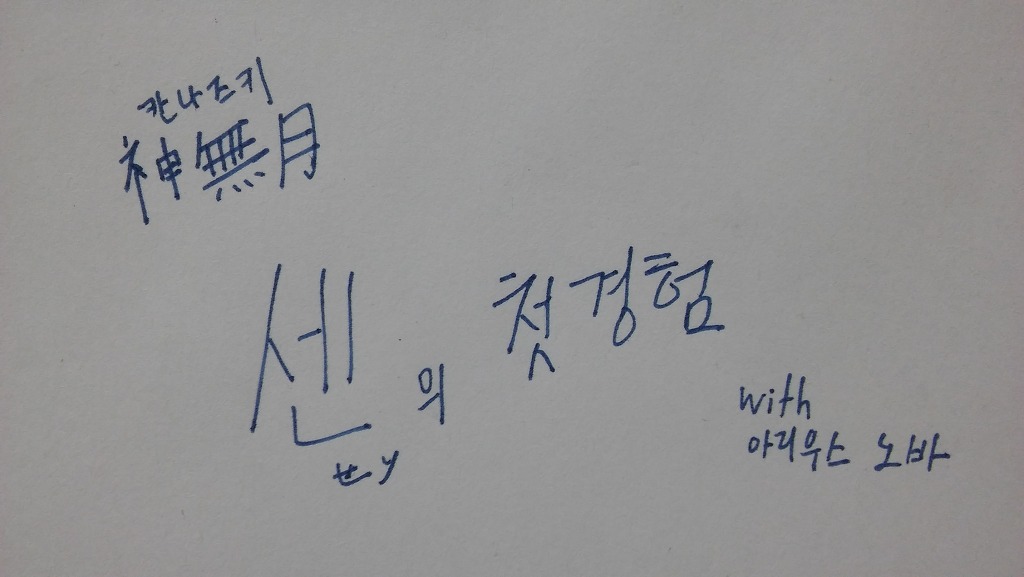 칸나즈키
神無月
센의 첫경험
せン
with
아리우스 노바